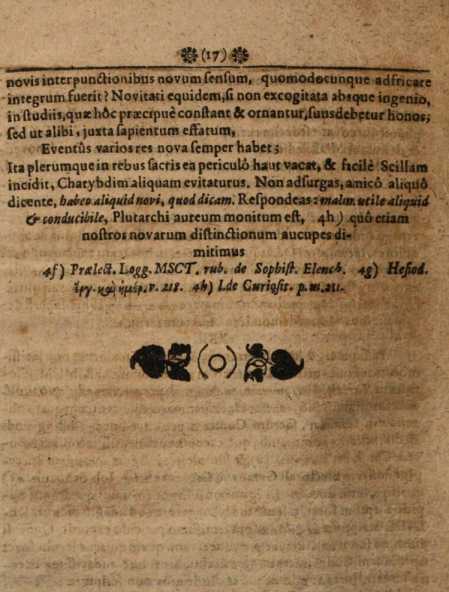 (17)
novis interpunctionibus novum sensum, quomodocunque adfricare
integrum fuerit? Novitati equidem, si non excogitata absque ingenio,
in studiis, quæ hôc præcipuè constant & ornantur, suus debetur honos;
sed ut alibi, juxta sapientum effatum,
Eventûs varios res nova semper habet;
Ita plerumque in rebus sacris ea periculô haut vacat, & facilè Scillam
incidit, Charybdim aliquam evitaturus. Non adsurgas, amicô aliquô
dicente, habeo aliquid novi, quod dicam. Respondeas: malim utile aliquid
& conducibile, Plutarchi aureum monitum est, 4h) quô etiam
nostros novarum distinctionum aucupes di-
mitimus
4f) Prælect. Logg. MSCT. rub. de Sophist. Elench. 4g) Hesiod.
ἔργ. καὶ ἡμέρ. v. 218. 4h) L de Curiosit. p. m. 211.